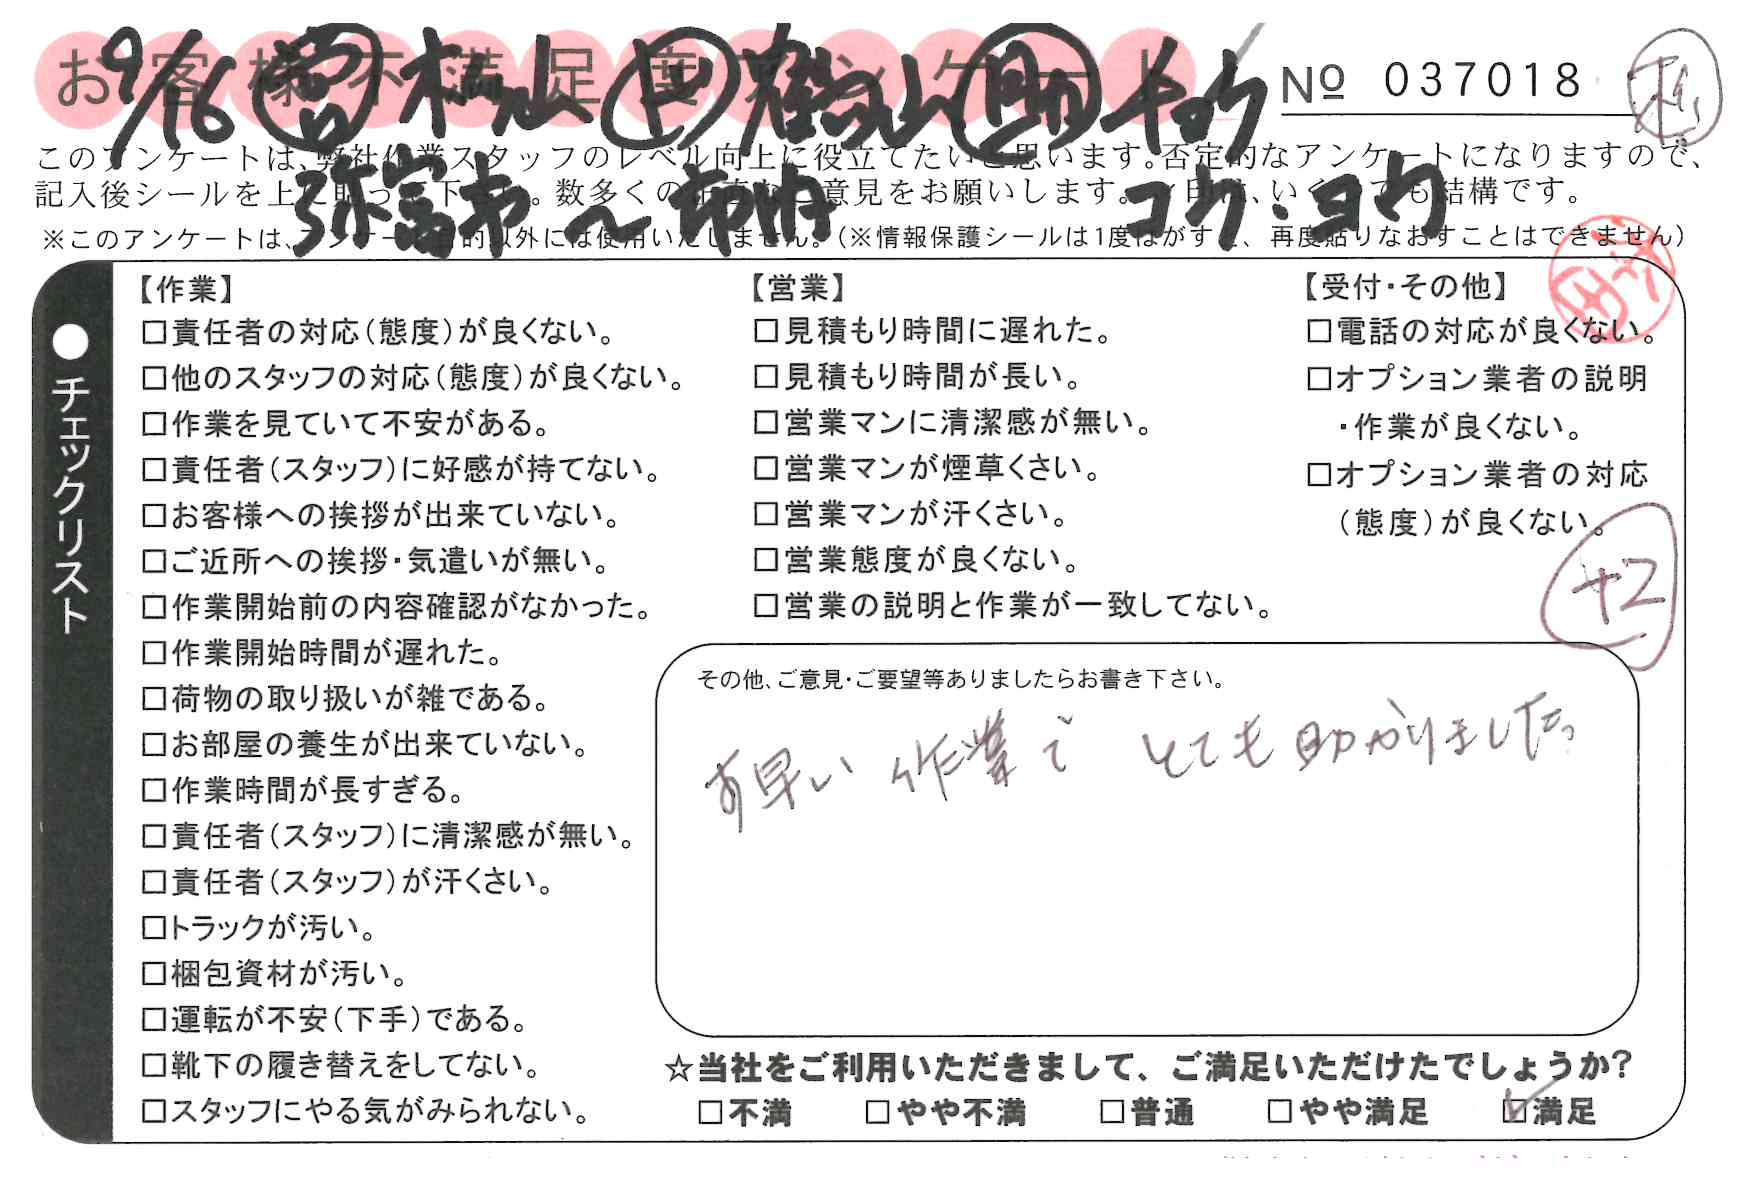 お客様不満足度アンケート
9/16 営 横山 ド 鶴山 助
№ 037018
このアンケートは、弊社作業スタッフのレベル向上に役立てたいと思います。否定的なアンケートになりますので、
記入後シールを上に貼って下さい。数多くの正直なご意見をお願いします。レ印は、いくつでも結構です。
弥富市〜市内 コウ・ヨウ
※このアンケートは、アンケート目的以外には使用いたしません。（※情報保護シールは1度はがすと、再度貼りなおすことはできません）
●チェックリスト
【作業】
□責任者の対応（態度）が良くない。
□他のスタッフの対応（態度）が良くない。
□作業を見ていて不安がある。
□責任者（スタッフ）に好感が持てない。
□お客様への挨拶が出来ていない。
□ご近所への挨拶・気遣いが無い。
□作業開始前の内容確認がなかった。
□作業開始時間が遅れた。
□荷物の取り扱いが雑である。
□お部屋の養生が出来ていない。
□作業時間が長すぎる。
□責任者（スタッフ）に清潔感が無い。
□責任者（スタッフ）が汗くさい。
□トラックが汚い。
□梱包資材が汚い。
□運転が不安（下手）である。
□靴下の履き替えをしてない。
□スタッフにやる気がみられない。
【営業】
□見積もり時間に遅れた。
□見積もり時間が長い。
□営業マンに清潔感が無い。
□営業マンが煙草くさい。
□営業マンが汗くさい。
□営業態度が良くない。
□営業の説明と作業が一致してない。
【受付・その他】
□電話の対応が良くない。
□オプション業者の説明
・作業が良くない。
□オプション業者の対応
（態度）が良くない。
+2
その他、ご意見・ご要望等ありましたらお書き下さい。
す早い作業で とても助かりました。
☆当社をご利用いただきまして、ご満足いただけたでしょうか?
□不満 □やや不満 □普通 □やや満足 ☑満足